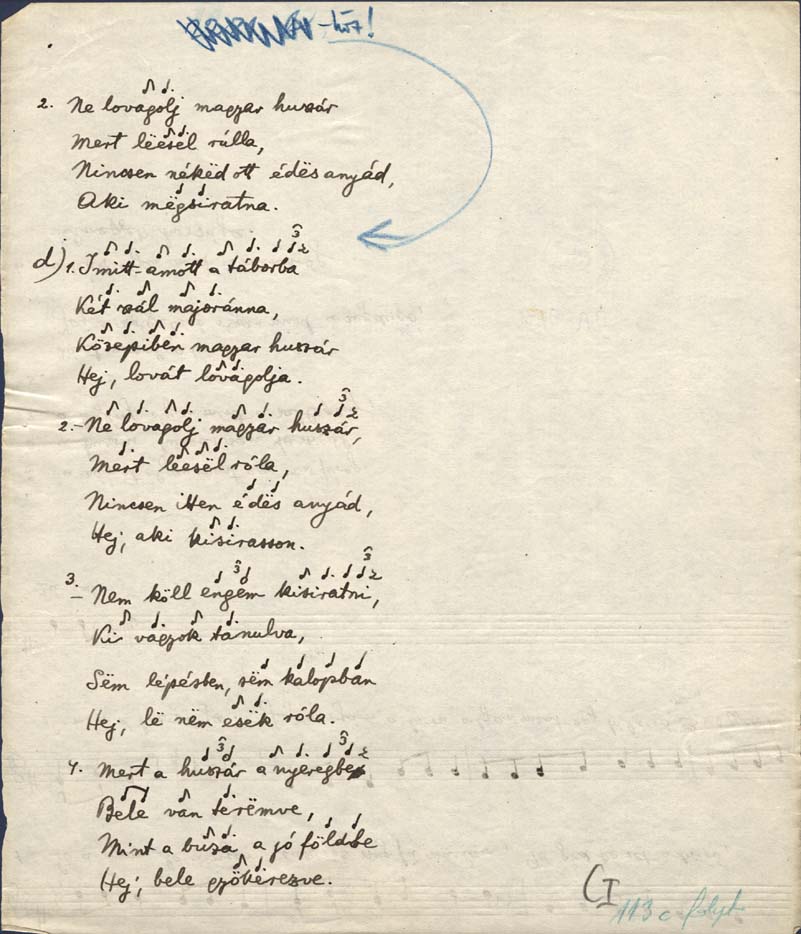 -höz!
2. Ne lovagolj magyar huszár
Mert lëesël rúlla,
Nincsen nékëd ott édës anyád,
Aki mëgsiratna.
d) 1. Imitt-amott a táborba
Két szál majoránna,
Közepibën magyar huszár
Hej, lovát lovagolja.
2.- Ne lovagolj magyar huszár,
Mert lëesël róla,
Nincsen itten édës anyád,
Hej, aki kisirasson.
3. - Nem köll engëm kisiratni,
Ki vagyok tanulva,
Sëm lépésben, sëm kalopban
Hej, lë nëm esëk róla.
4. Mert a huszár a nyeregbe
Bele van terëmve,
Mint a buza a jó földbe
Hej, bele gyökerezve.
CI
113 c folyt